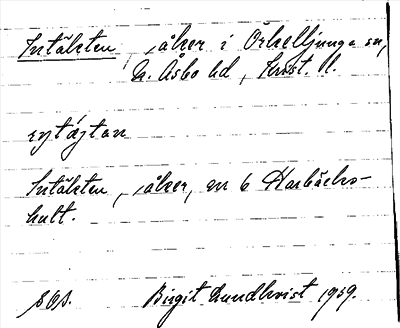 Intäkten, åker i Örkelljunga sn,
N. Åsbo hd, Krist. l.
Intäkten, åker, en 6 Harbäcks-
hult.
Birgit Lundkvist 1959.